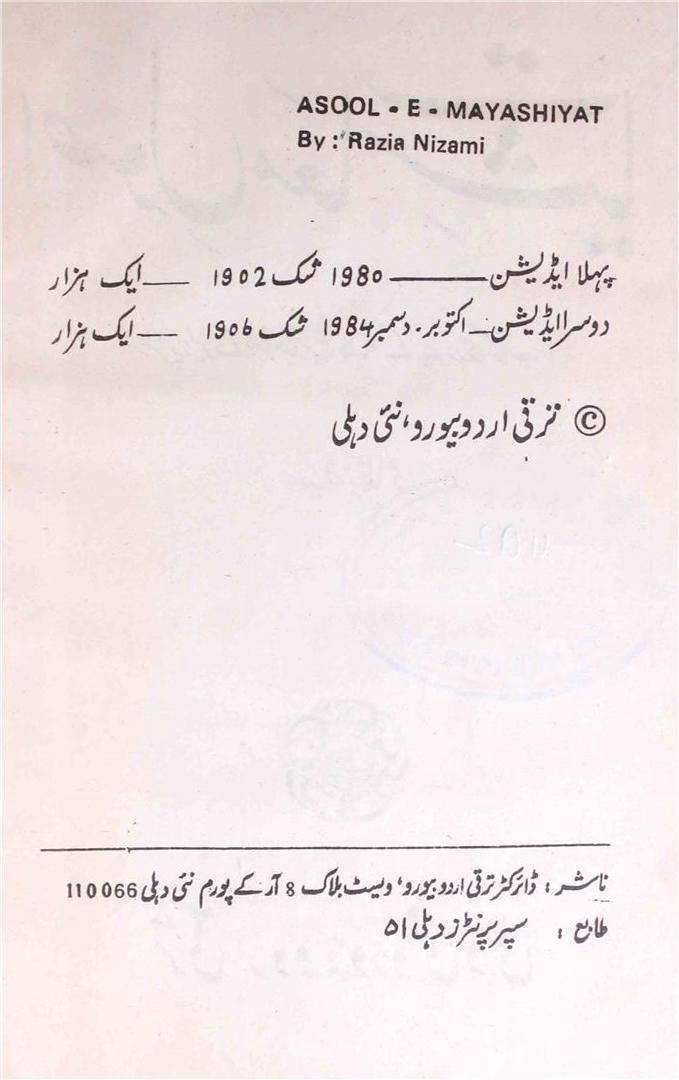 ASOOL - E - MAYASHIYAT
By : Razia Nizami
پہلا ایڈیشن — 1980 شک 1902 — ایک ہزار
دوسرا ایڈیشن — اکتوبر۔ دسمبر 1984 شک 1906 — ایک ہزار
© ترقی اردو بیورو، نئی دہلی
ناشر : ڈائرکٹر ترقی اردو بیورو، ویسٹ بلاک 8 آر کے پورم نئی دہلی 110066
طابع : سپر پرنٹرز دہلی ۵۱